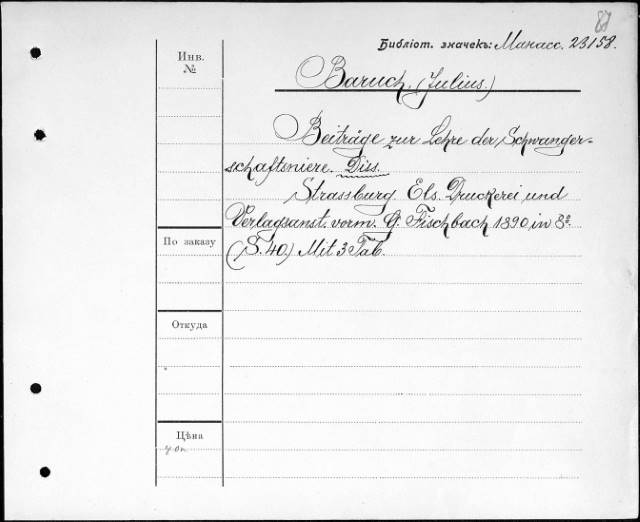 87
Библіот. значекъ: Манасс. 23158.
Инв.
№
Baruch, (Julius.)
Beiträge zur Lehre der Schwanger-
schaftsniere. Diss.
Strassburg. Els. Druckerei und
Verlagsanst. vorm. G. Fischbach 1890, in 8º.
(S. 40.) Mit 3 Tab.
По заказу
Откуда
Цѣна
40к.